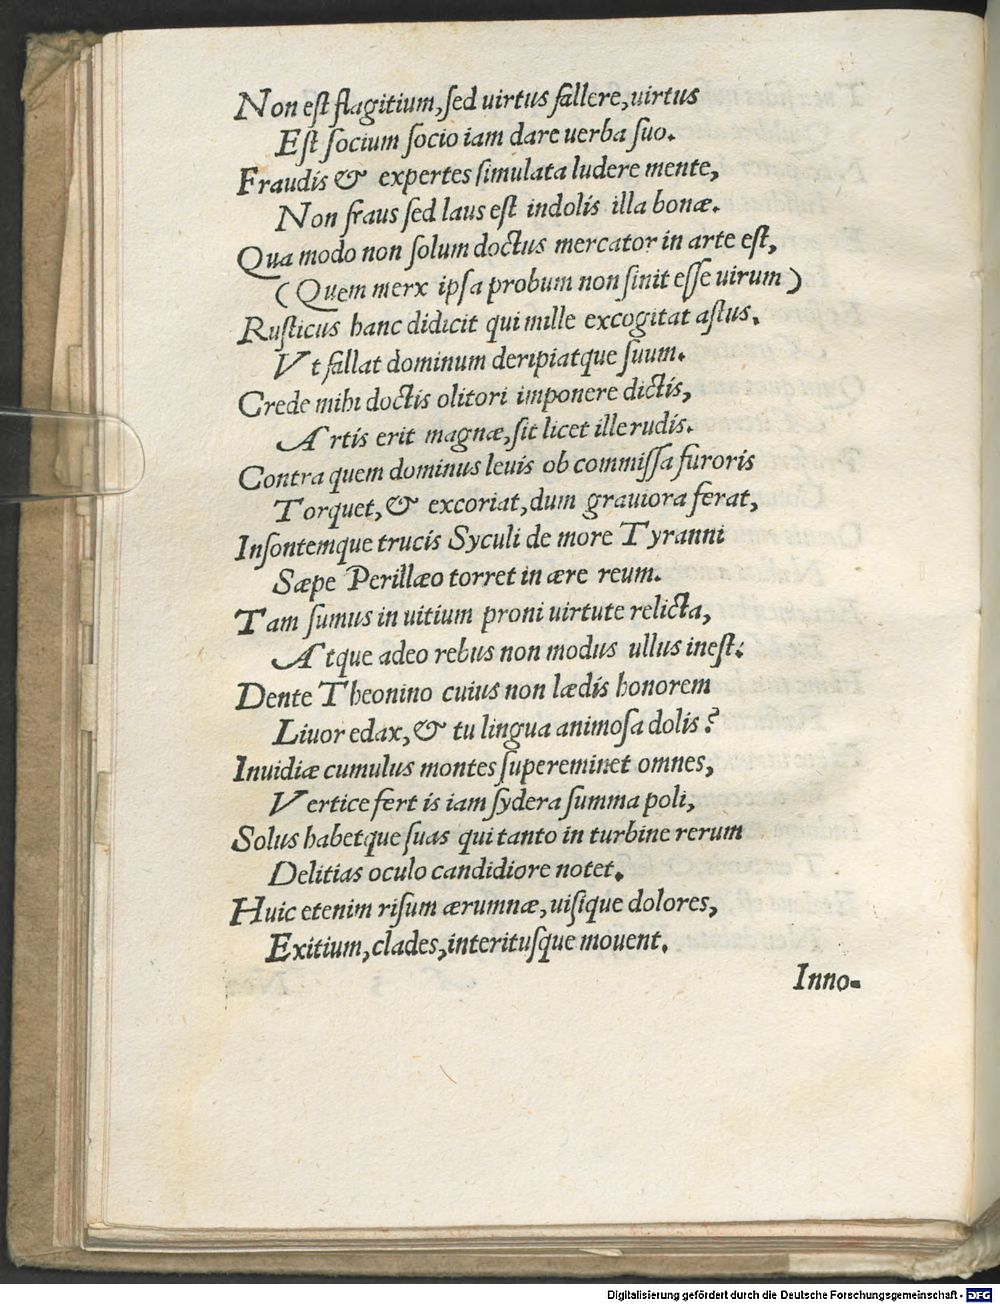 Non est flagitium, sed uirtus fallere, uirtus
Est socium socio iam dare uerba suo.
Fraudis & expertes simulata ludere mente,
Non fraus sed laus est indolis illa bonæ.
Qua modo non solum doctus mercator in arte est,
(Quem merx ipsa probum non sinit esse uirum)
Rusticus hanc didicit qui mille excogitat astus.
Vt fallat dominum deripiatque suum.
Crede mihi doctis olitori imponere dictis,
Artis erit magnæ, sit licet ille rudis.
Contra quem dominus leuis ob commissa furoris
Torquet, & excoriat, dum grauiora ferat,
Insontemque trucis Syculi de more Tyranni
Sæpe Perillæo torret in ære reum.
Tam sumus in uitium proni uirtute relicta,
Atque adeo rebus non modus ullus inest:
Dente Theonino cuius non lædis honorem
Liuor edax, & tu lingua animosa dolis?
Inuidiæ cumulus montes supereminet omnes,
Vertice fert is iam sydera summa poli,
Solus habetque suas qui tanto in turbine rerum
Delitias oculo candidiore notet.
Huic etenim risum ærumnæ, uisique dolores,
Exitium, clades, interitusque mouent.
Inno-
Digitalisierung gefördert durch die Deutsche Forschungsgemeinschaft - DFG